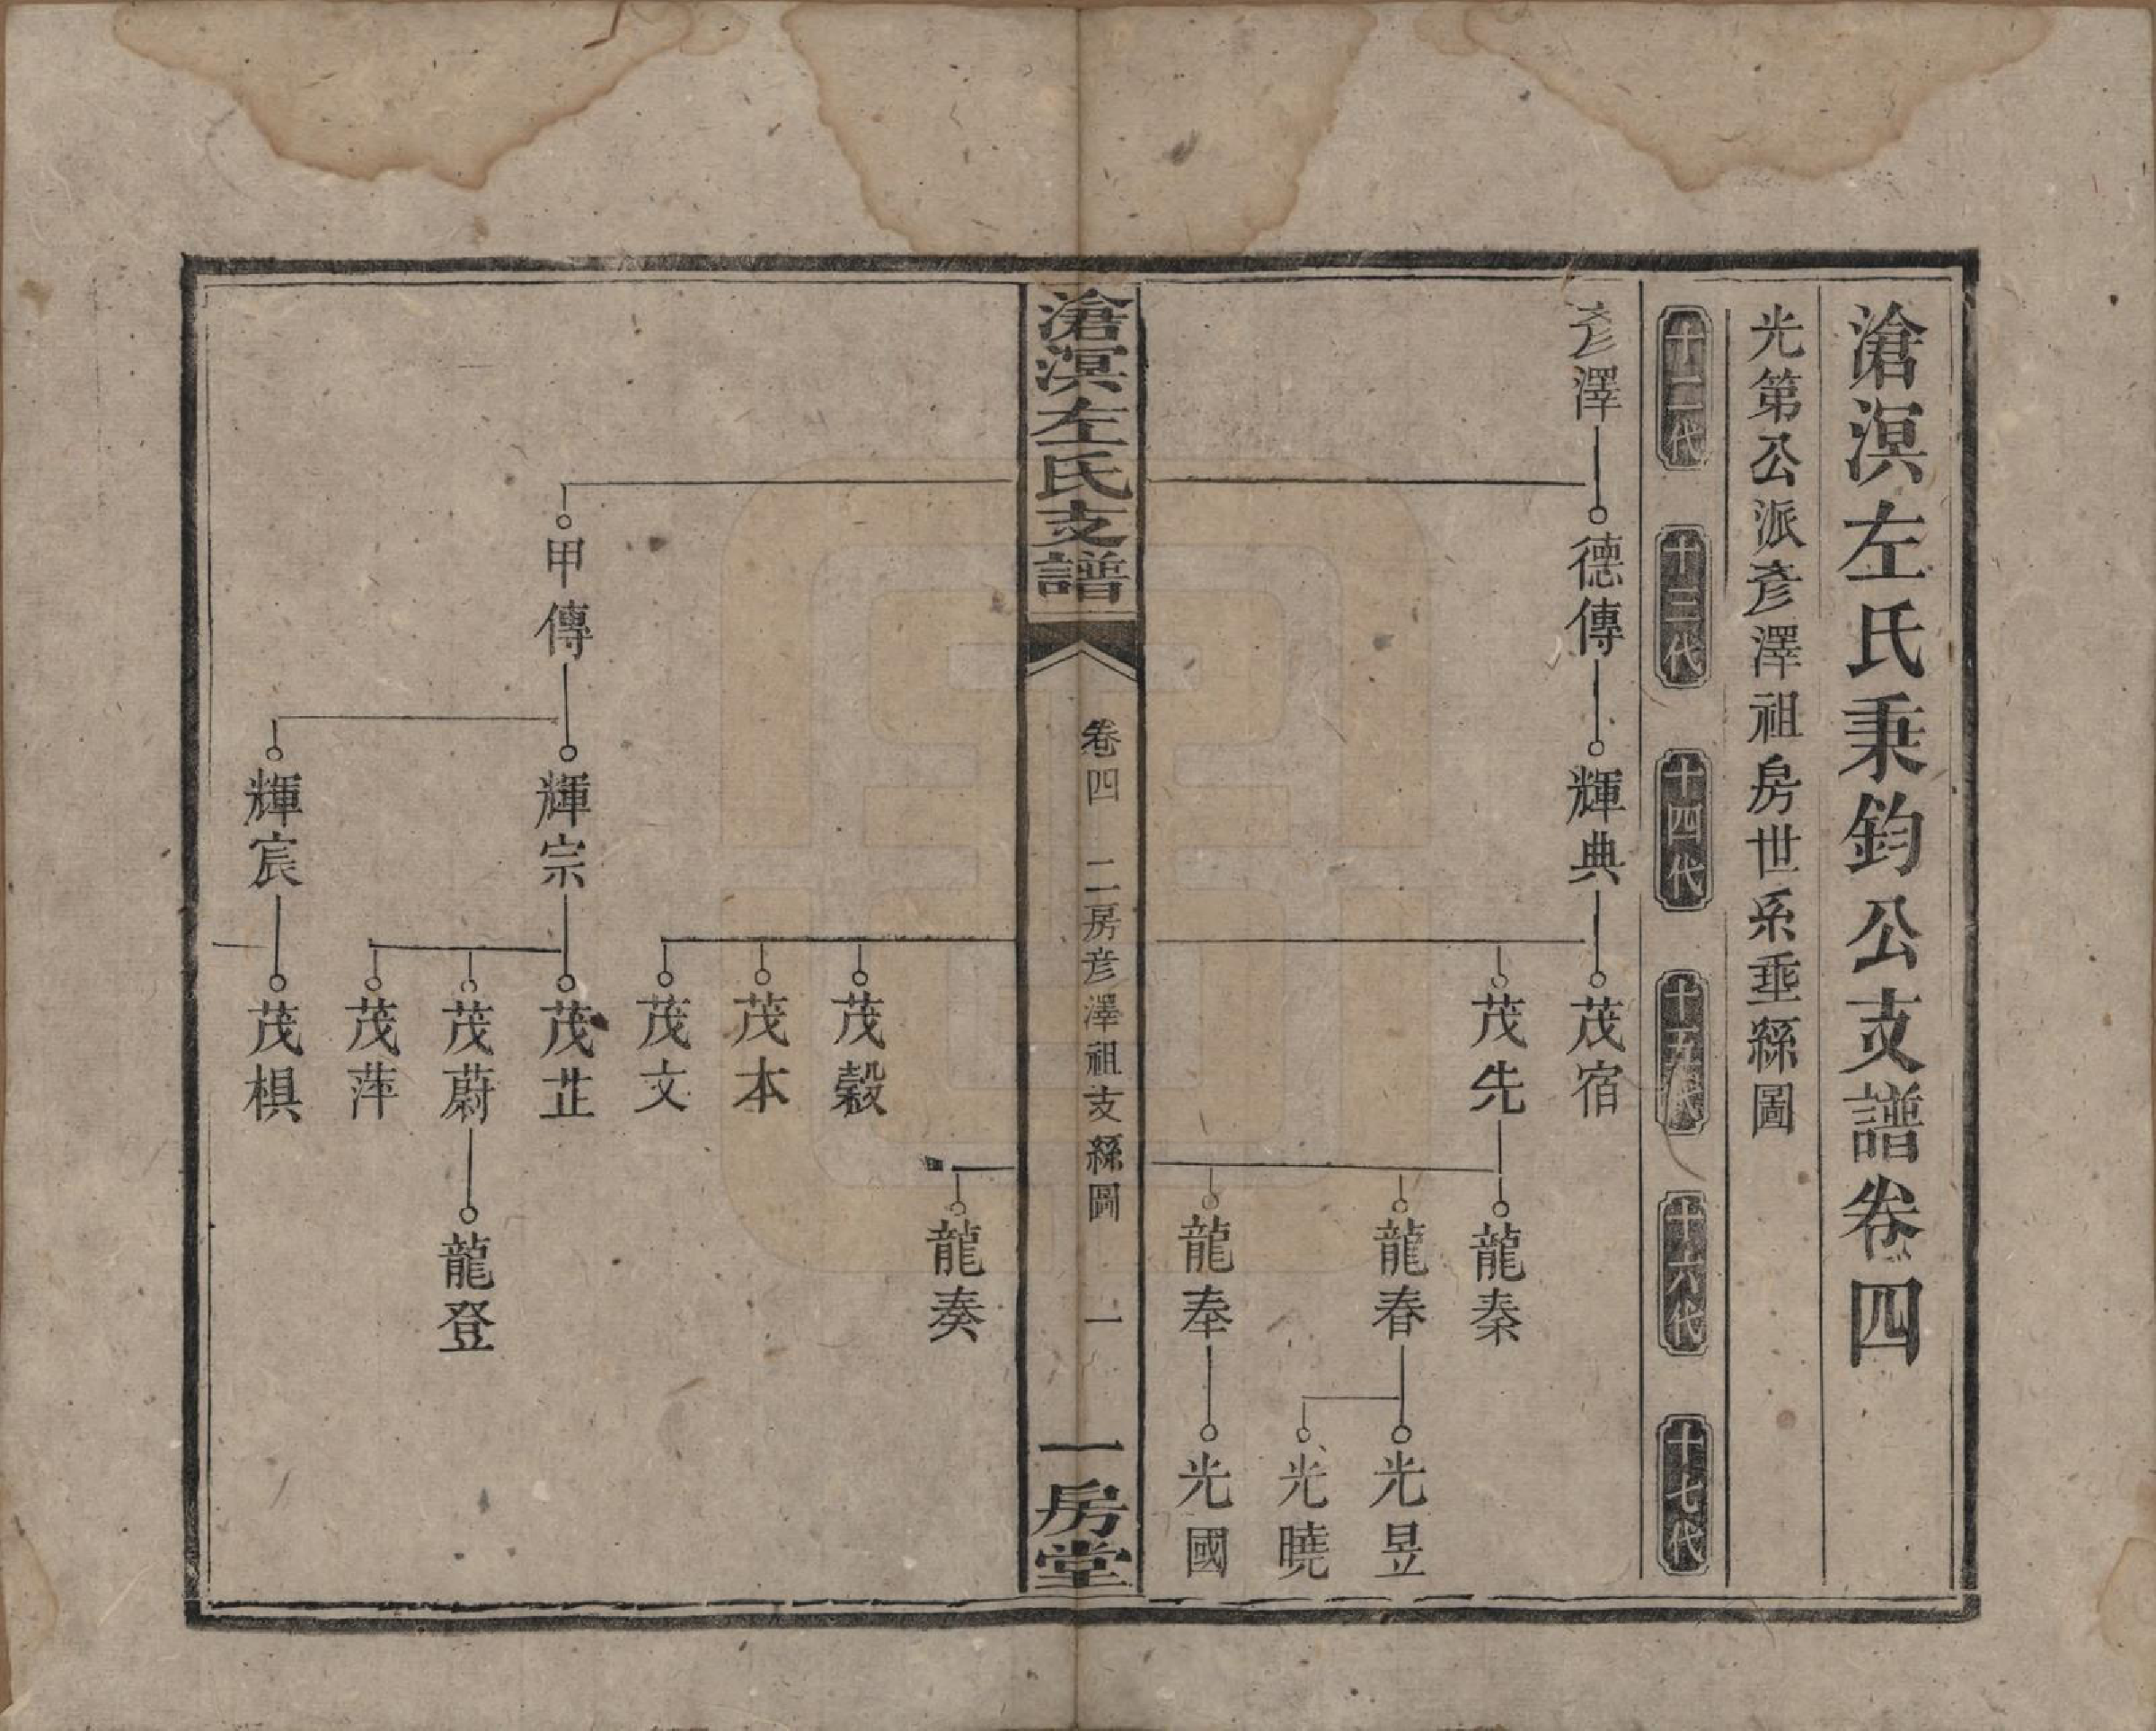 滄溟左氏秉鈞公支譜卷四
光第公派彥澤祖房世系垂絲圖
十二代
十三代
十四代
十五代
十六代
十七代
彥澤
德傳
輝典
茂宿
茂先
龍秦
龍春
光昱
光曉
龍奉
光國
滄溟左氏支譜
卷四
二房彥澤祖支絲圖
一
一房堂
龍奏
茂穀
茂本
茂文
甲傳
輝宗
茂芷
茂蔚
龍登
茂萍
輝宸
茂椇